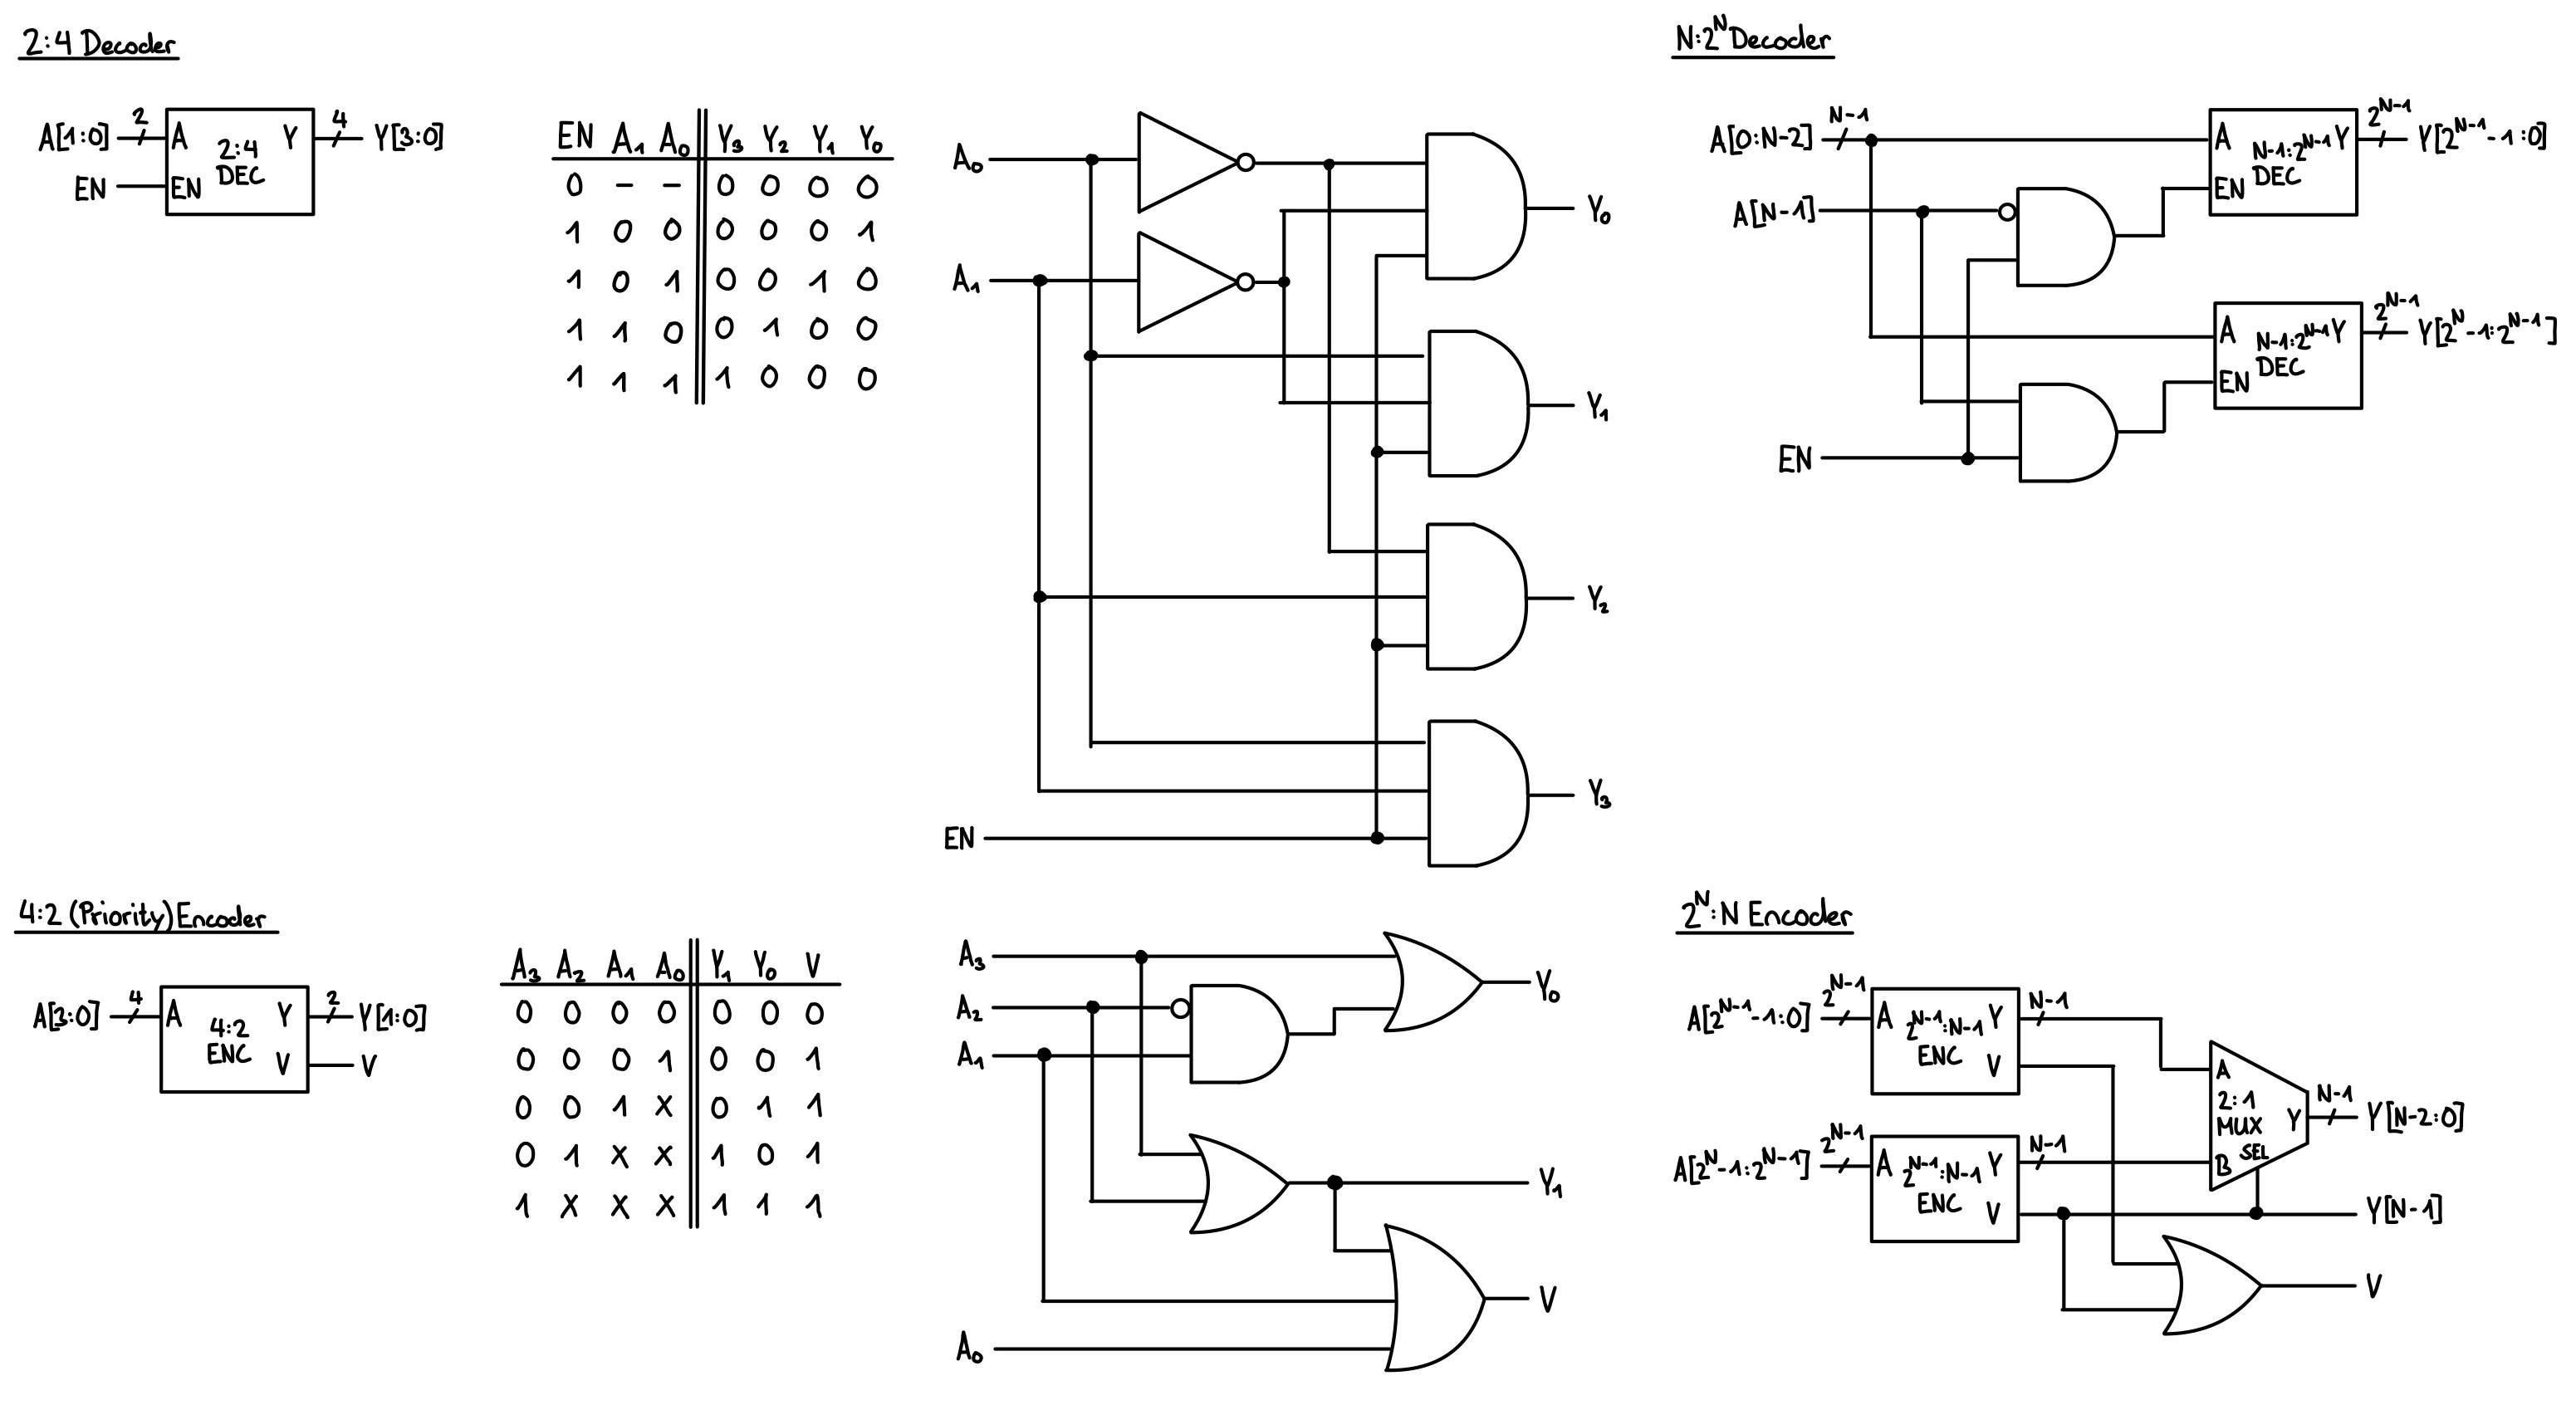 2:4 Decoder
A[1:0] 2 A Y 4 Y[3:0]
2:4
DEC
EN EN
EN A₁ A₀ Y₃ Y₂ Y₁ Y₀
0 - - 0 0 0 0
1 0 0 0 0 0 1
1 0 1 0 0 1 0
1 1 0 0 1 0 0
1 1 1 1 0 0 0
A₀
A₁
EN
Y₀
Y₁
Y₂
Y₃
N:2ᴺ Decoder
A[0:N-2] N-1 A Y 2ᴺ⁻¹ Y[2ᴺ⁻¹-1:0]
N-1:2ᴺ⁻¹
DEC
EN
A[N-1]
A Y 2ᴺ⁻¹ Y[2ᴺ-1:2ᴺ⁻¹]
N-1:2ᴺ⁻¹
DEC
EN
EN
4:2 (Priority) Encoder
A[3:0] 4 A Y 2 Y[1:0]
4:2
ENC
V V
A₃ A₂ A₁ A₀ Y₁ Y₀ V
0 0 0 0 0 0 0
0 0 0 1 0 0 1
0 0 1 X 0 1 1
0 1 X X 1 0 1
1 X X X 1 1 1
A₃
A₂
A₁
A₀
Y₀
Y₁
V
2ᴺ:N Encoder
A[2ᴺ⁻¹-1:0] 2ᴺ⁻¹ A Y N-1
2ᴺ⁻¹:N-1
ENC
V
A[2ᴺ-1:2ᴺ⁻¹] 2ᴺ⁻¹ A Y N-1
2ᴺ⁻¹:N-1
ENC
V
A
2:1
MUX
Y N-1 Y[N-2:0]
B SEL
Y[N-1]
V